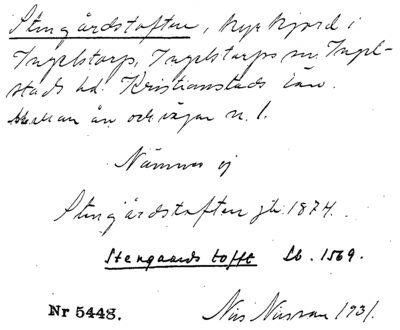 Stengårdstoften, Kyrkjord i
Ingelstorp, Ingelstorps sn. Ingel-
stads hd. Kristianstads län.
Mellan ån och vägen n. l.
Nämnes ej
Stengårdstoften jb. 1874.
Stengaards tofft Lb. 1569.
Nr 5448. Nils Nilsson 1931.